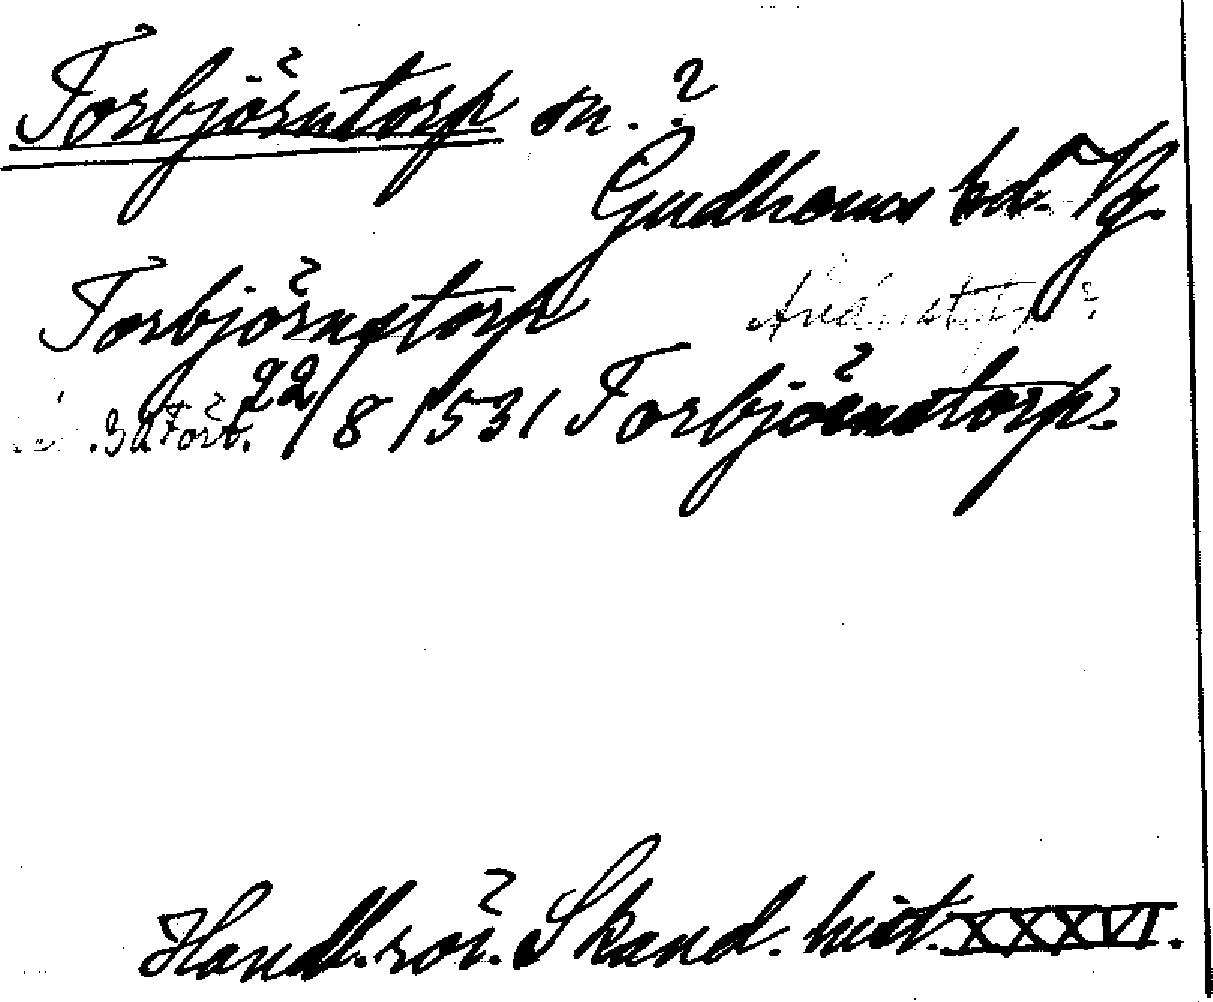 Torbjörntorp sn. ?
Gudhems hd. Vg.
Torbjörnstorp
22/8 1531 Torbjörnstorp.
Handl. rör. Skand. hist. XXXVI.